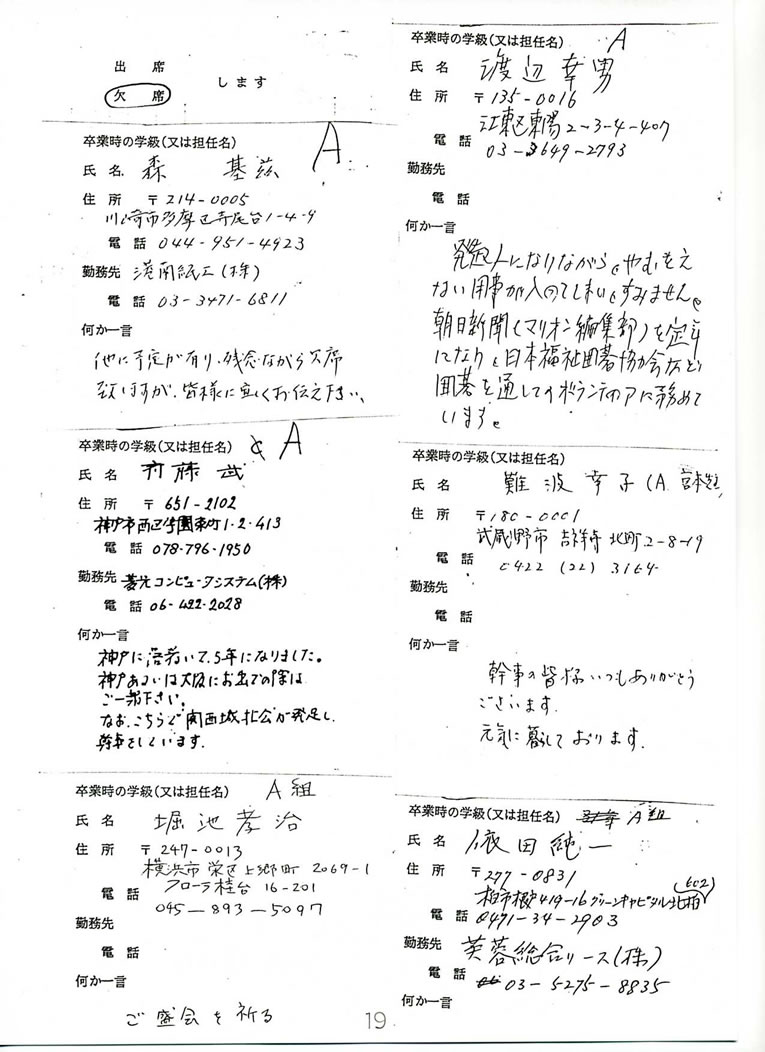 出席
欠席
します
卒業時の学級(又は担任名) A
氏名 森 基茲
住所 〒214-0005
川崎市多摩区寺尾台1-4-9
電話 044-951-4923
勤務先 港南紙工(株)
電話 03-3471-6811
何か一言
他に予定が有り、残念ながら欠席
致しますが、皆様に宜しくお伝え下さい、
卒業時の学級(又は担任名) A
氏名 斉藤 武
住所 〒651-2102
神戸市西区学園東町1・2・413
電話 078-796-1950
勤務先 菱光コンピュータシステム(株)
電話 06-422-2028
何か一言
神戸に落着いて、5年になりました。
神戸あるいは大阪にお出での節は
ご一報下さい。
なお、こちらで関西城北会が発足し、
幹事をしています。
卒業時の学級(又は担任名) A組
氏名 堀池孝治
住所 〒247-0013
横浜市栄区上郷町 2069-1
フローラ桂台 16-201
電話 045-893-5097
勤務先
電話
何か一言
ご盛会を祈る
卒業時の学級(又は担任名) A
氏名 渡辺幸男
住所 〒135-0016
江東区東陽2-3-4-407
電話 03-3649-2793
勤務先
電話
何か一言
発起人になりながら、やむをえ
ない用事が入ってしまい、すみません。
朝日新聞(マリオン編集部)を定年
になり、日本福祉囲碁協会など
囲碁を通してのボランティアに務めて
います。
卒業時の学級(又は担任名)
氏名 難波幸子(A. 宮本先生)
住所 〒180-0001
武蔵野市 吉祥寺 北町2-8-19
電話 0422 (22) 3164
勤務先
電話
何か一言
幹事の皆様いつもありがとう
ございます.
元気に暮しております.
卒業時の学級(又は担任名) A組
氏名 依田純一
住所 〒277-0831
柏市根戸419-16グリーンキャピタル北柏
電話 0471-34-2903
勤務先 芙蓉総合リース(株)
電話 03-5275-8835
何か一言
19